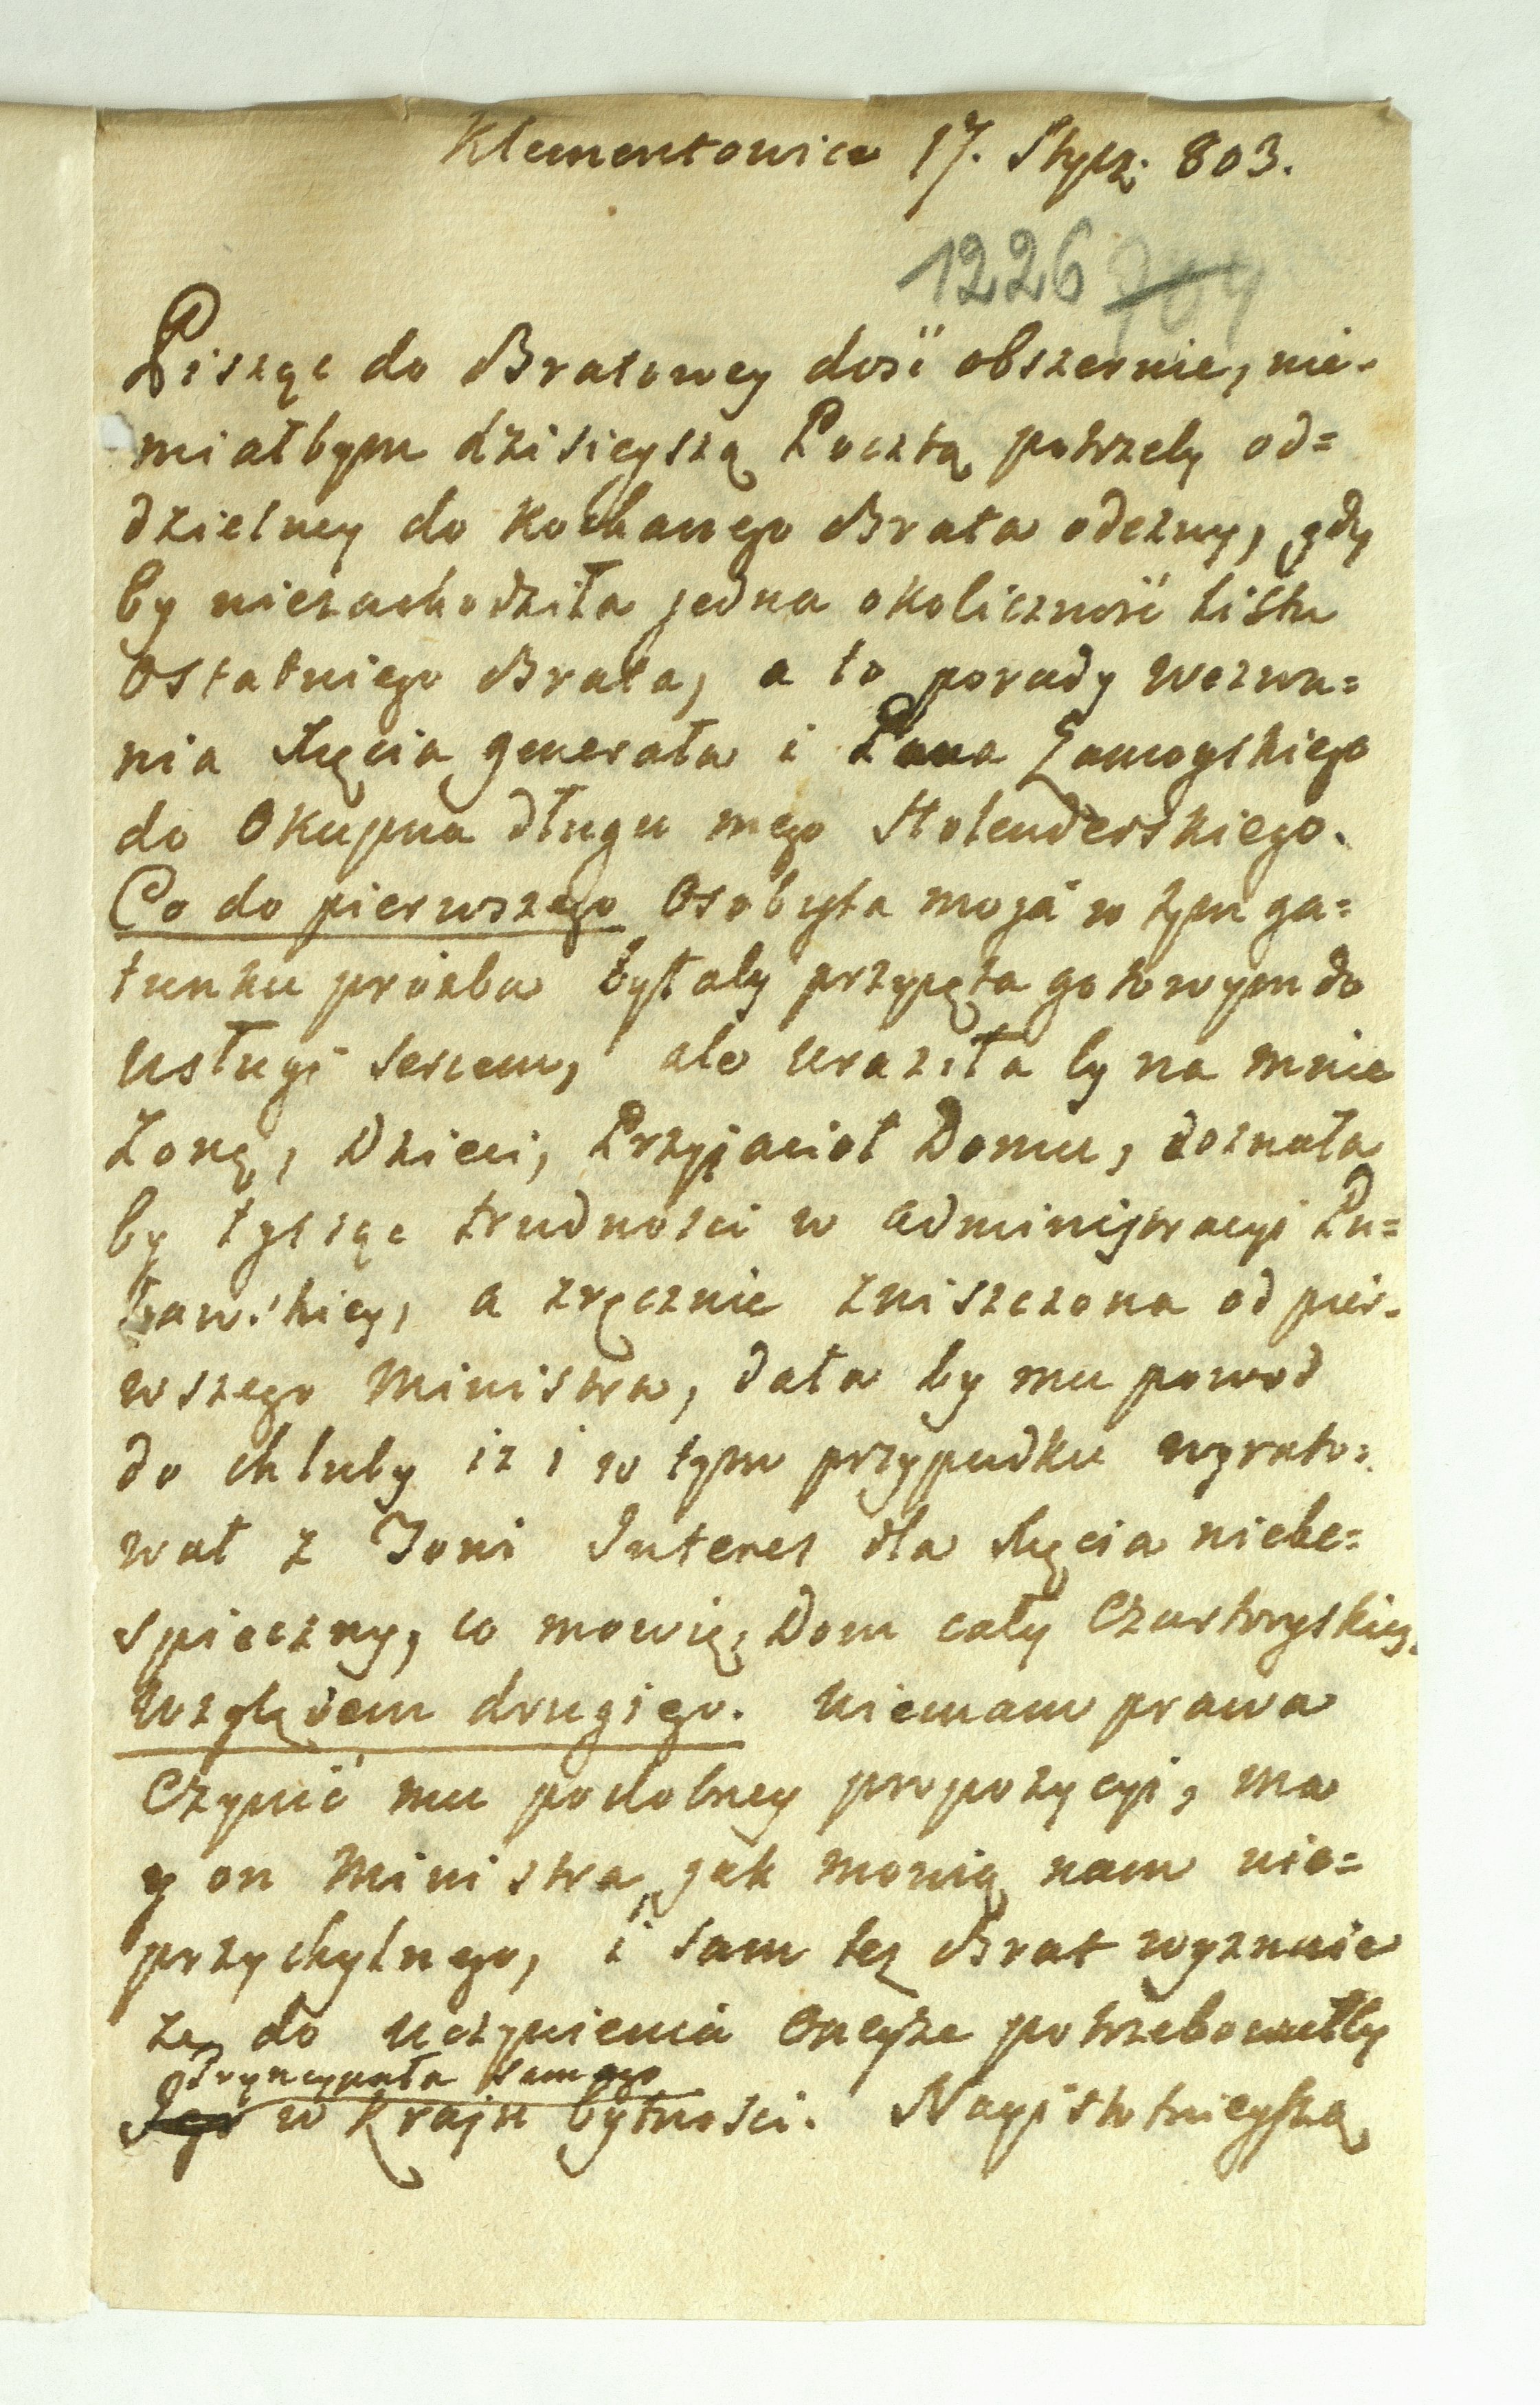 Klementowice 17. Stycz: 803.
1226 704
Pisząc do Bratowey dość obszernie, nie-
miałbym dzisieyszą Pocztą potrzeby od=
dzielney do Kochanego Brata odezwy, gdy
by niezachodziła jedna okoliczność Listu
Ostatniego Brata, a to porady wezwa=
nia Xięcia Generała i Pana Zamoyskiego
do Okupna długu mego Holenderskiego.
Co do pierwszego Osobista moja w tym ga=
tunku prozba byłaby przyjęta gotowym do
usługi sercem, ale uraziła by na mnie
Zonę, Dzieci, Przyjaciół Domu, doznała
by tysiąc trudności w administracyi Pu=
ławskiey, a zręcznie zniszczona od pier-
wszego Ministra, dała by mu powod
do chluby iz i w tym przypadku wyrato=
wał z Toni Interes dla Xięcia niebe=
spieczny, co mowię, Dom cały Czartoryskich.
Względem drugiego. Niemam prawa
Czynić mu podobney propozycyi, ma
y on Ministra jak mowią nam nie=
przychylnego, i sam tez Brat wyznaie
ze do uczynienia Oneyże potrzebowałby
Pryncypała samego
Jego w Kraju bytności. Nayistotnieyszą